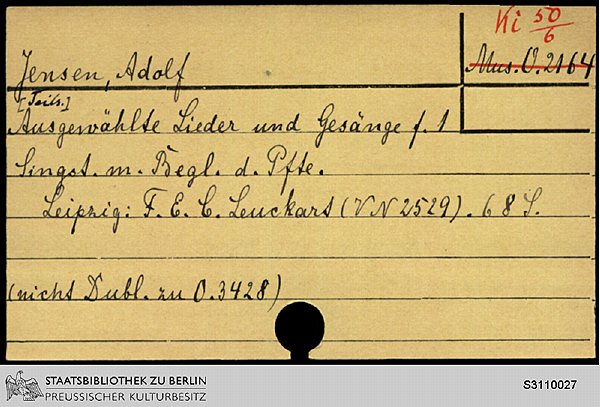 Ki 50/6
Jensen, Adolf
Mus. O. 2164
[Teils.]
Ausgewählte Lieder und Gesänge f. 1
Singst. m. Begl. d. Pfte.
Leipzig: F. E. C. Leuckart (VN 2529). 68 S.
(nicht Dubl. zu O. 3428)
STAATSBIBLIOTHEK ZU BERLIN
PREUSSISCHER KULTURBESITZ
S3110027